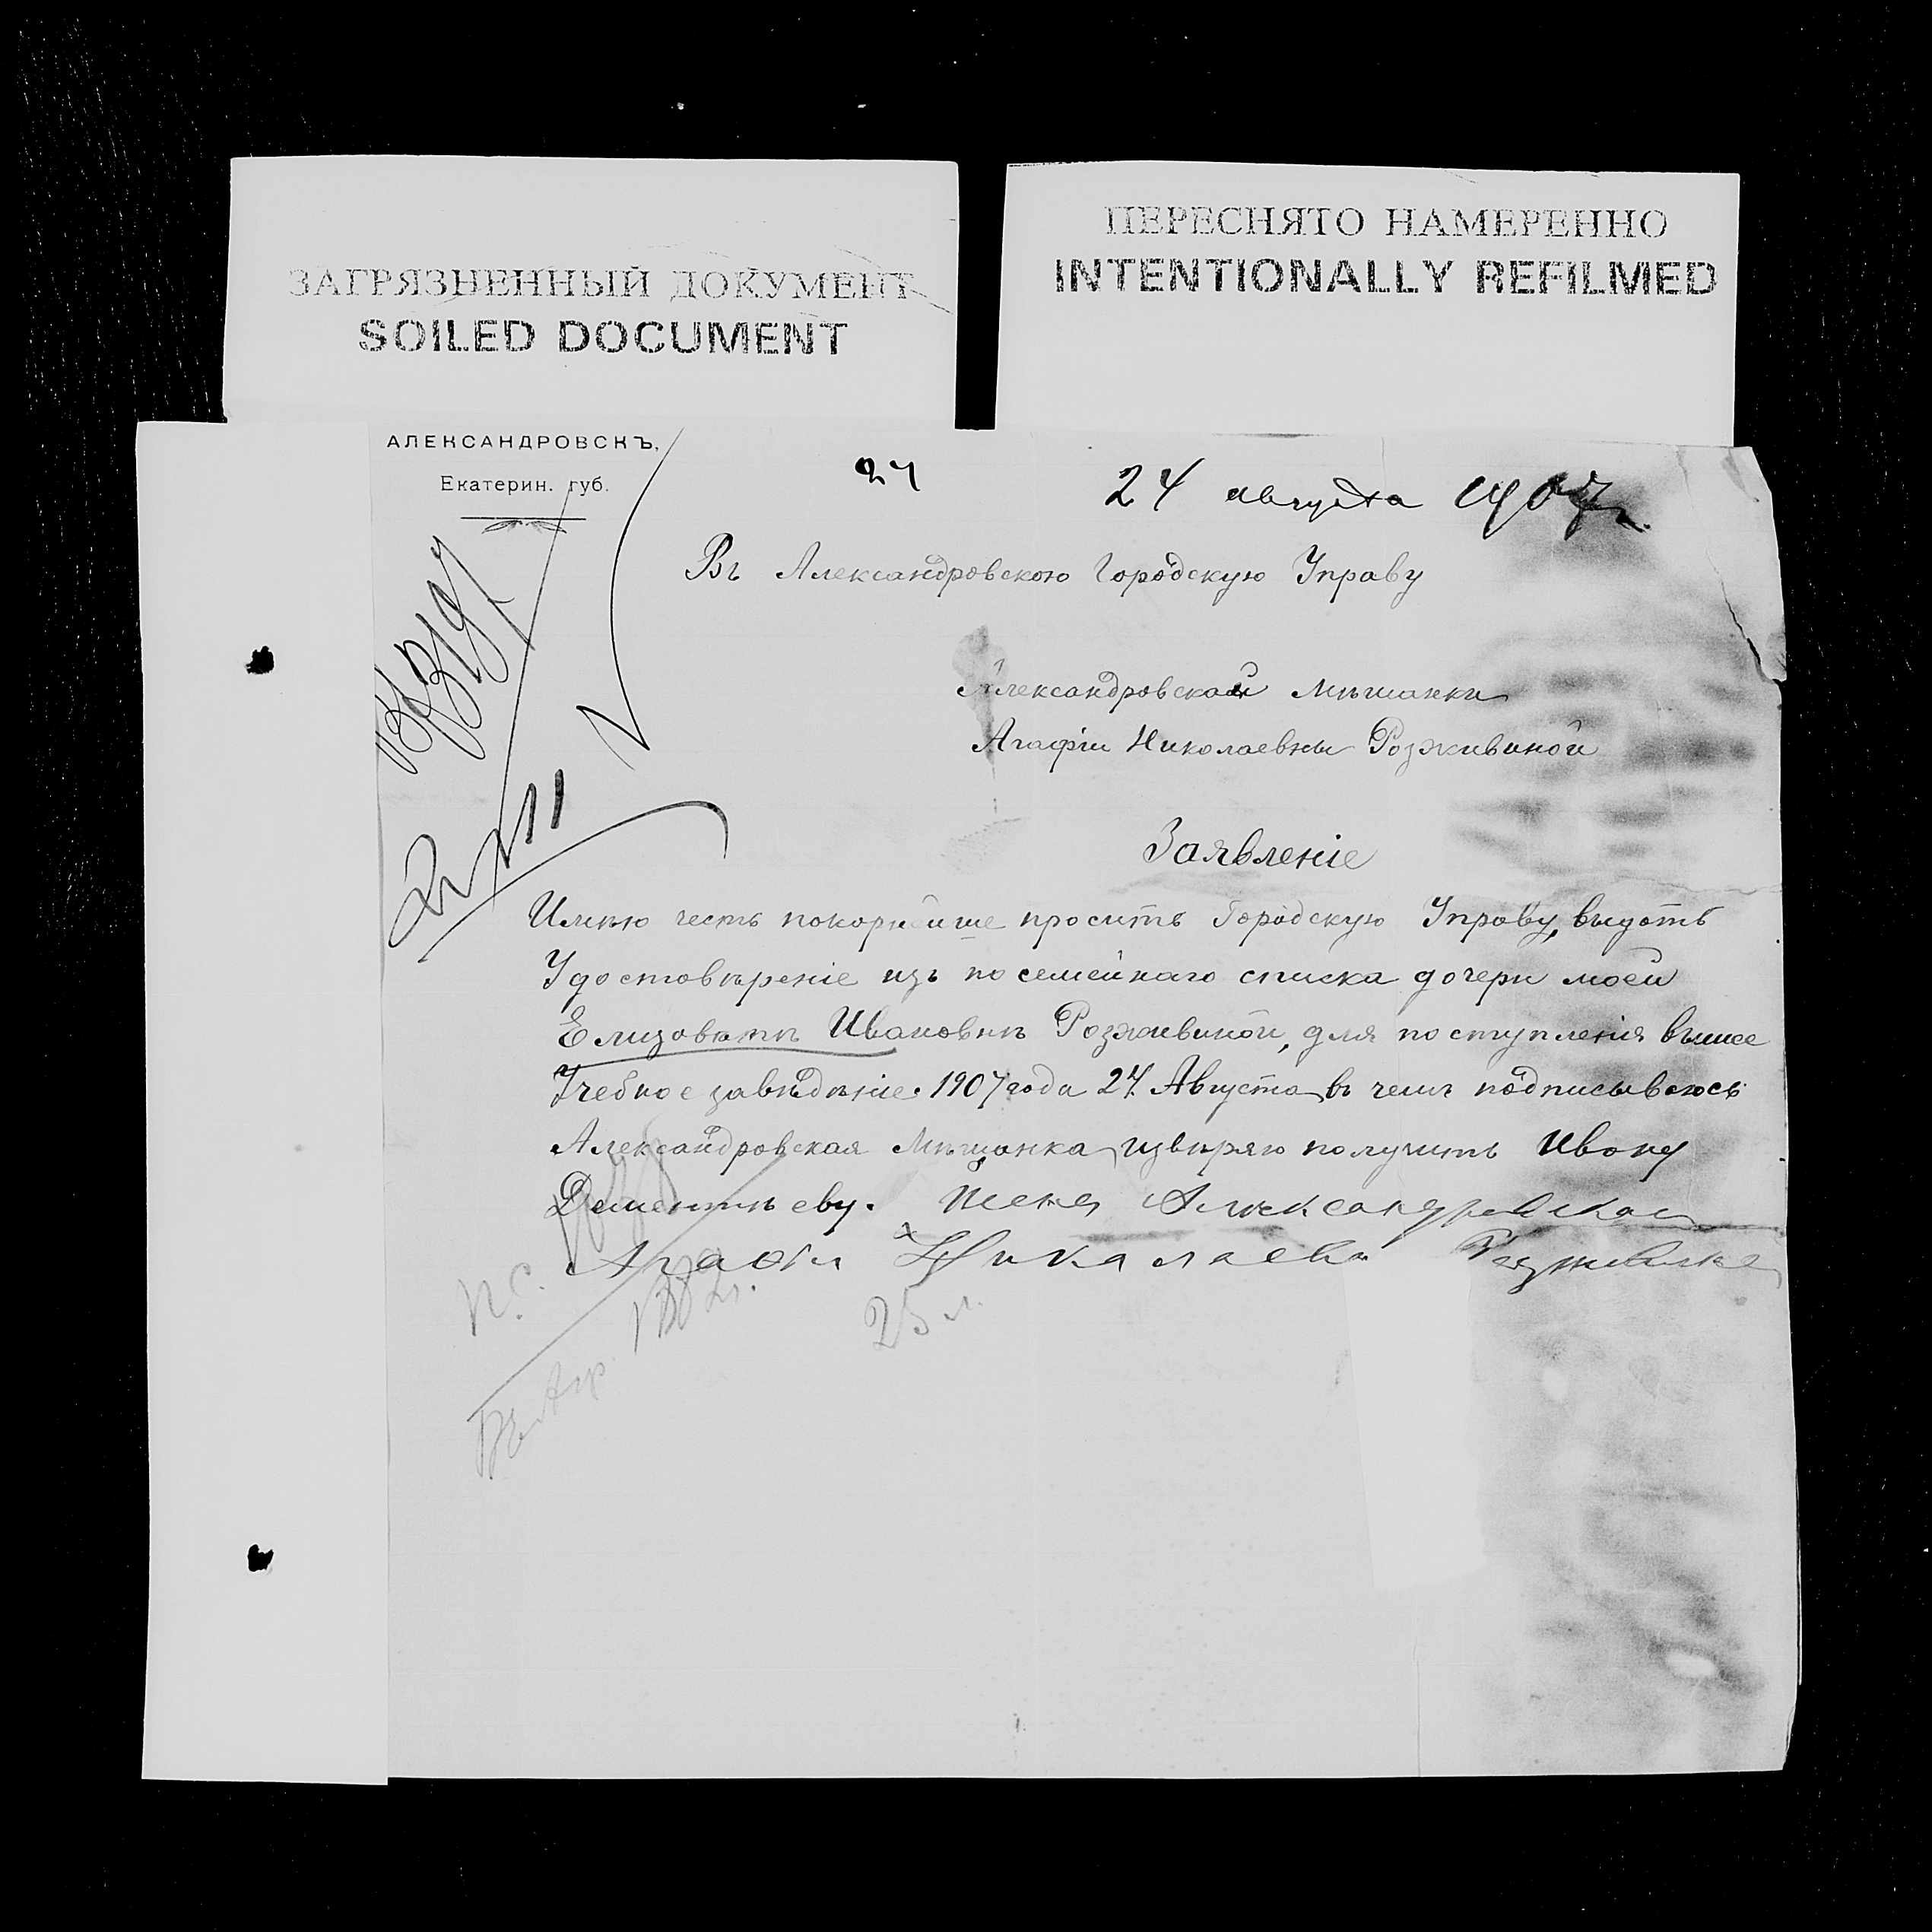 ЗАГРЯЗНЕННЫЙ ДОКУМЕНТ
SOILED DOCUMENT
ПЕРЕСНЯТО НАМЕРЕННО
INTENTIONALLY REFILMED
АЛЕКСАНДРОВСКЪ,
Екатерин. губ.
24 августа 1907 г.
Въ Александровскою Городскую Управу
Александровской Мѣшанки
Агафіи Николаевны Розживиной
Заявленіе
Имѣю честь покорнѣйше просить Городскую Управу, выдать
Удостовѣреніе изъ посемейнаго списка дочери моей
Елизоветѣ Ивановнѣ Розживиной, для поступленія вышее
Учебное завѣденіе. 1907 года 24 Августа въ чемъ подписываюсь
Александровская Мѣщанка, извѣряю получить Ивону
Дементьеву. Александровская
Агафи Никалаева
25 л.